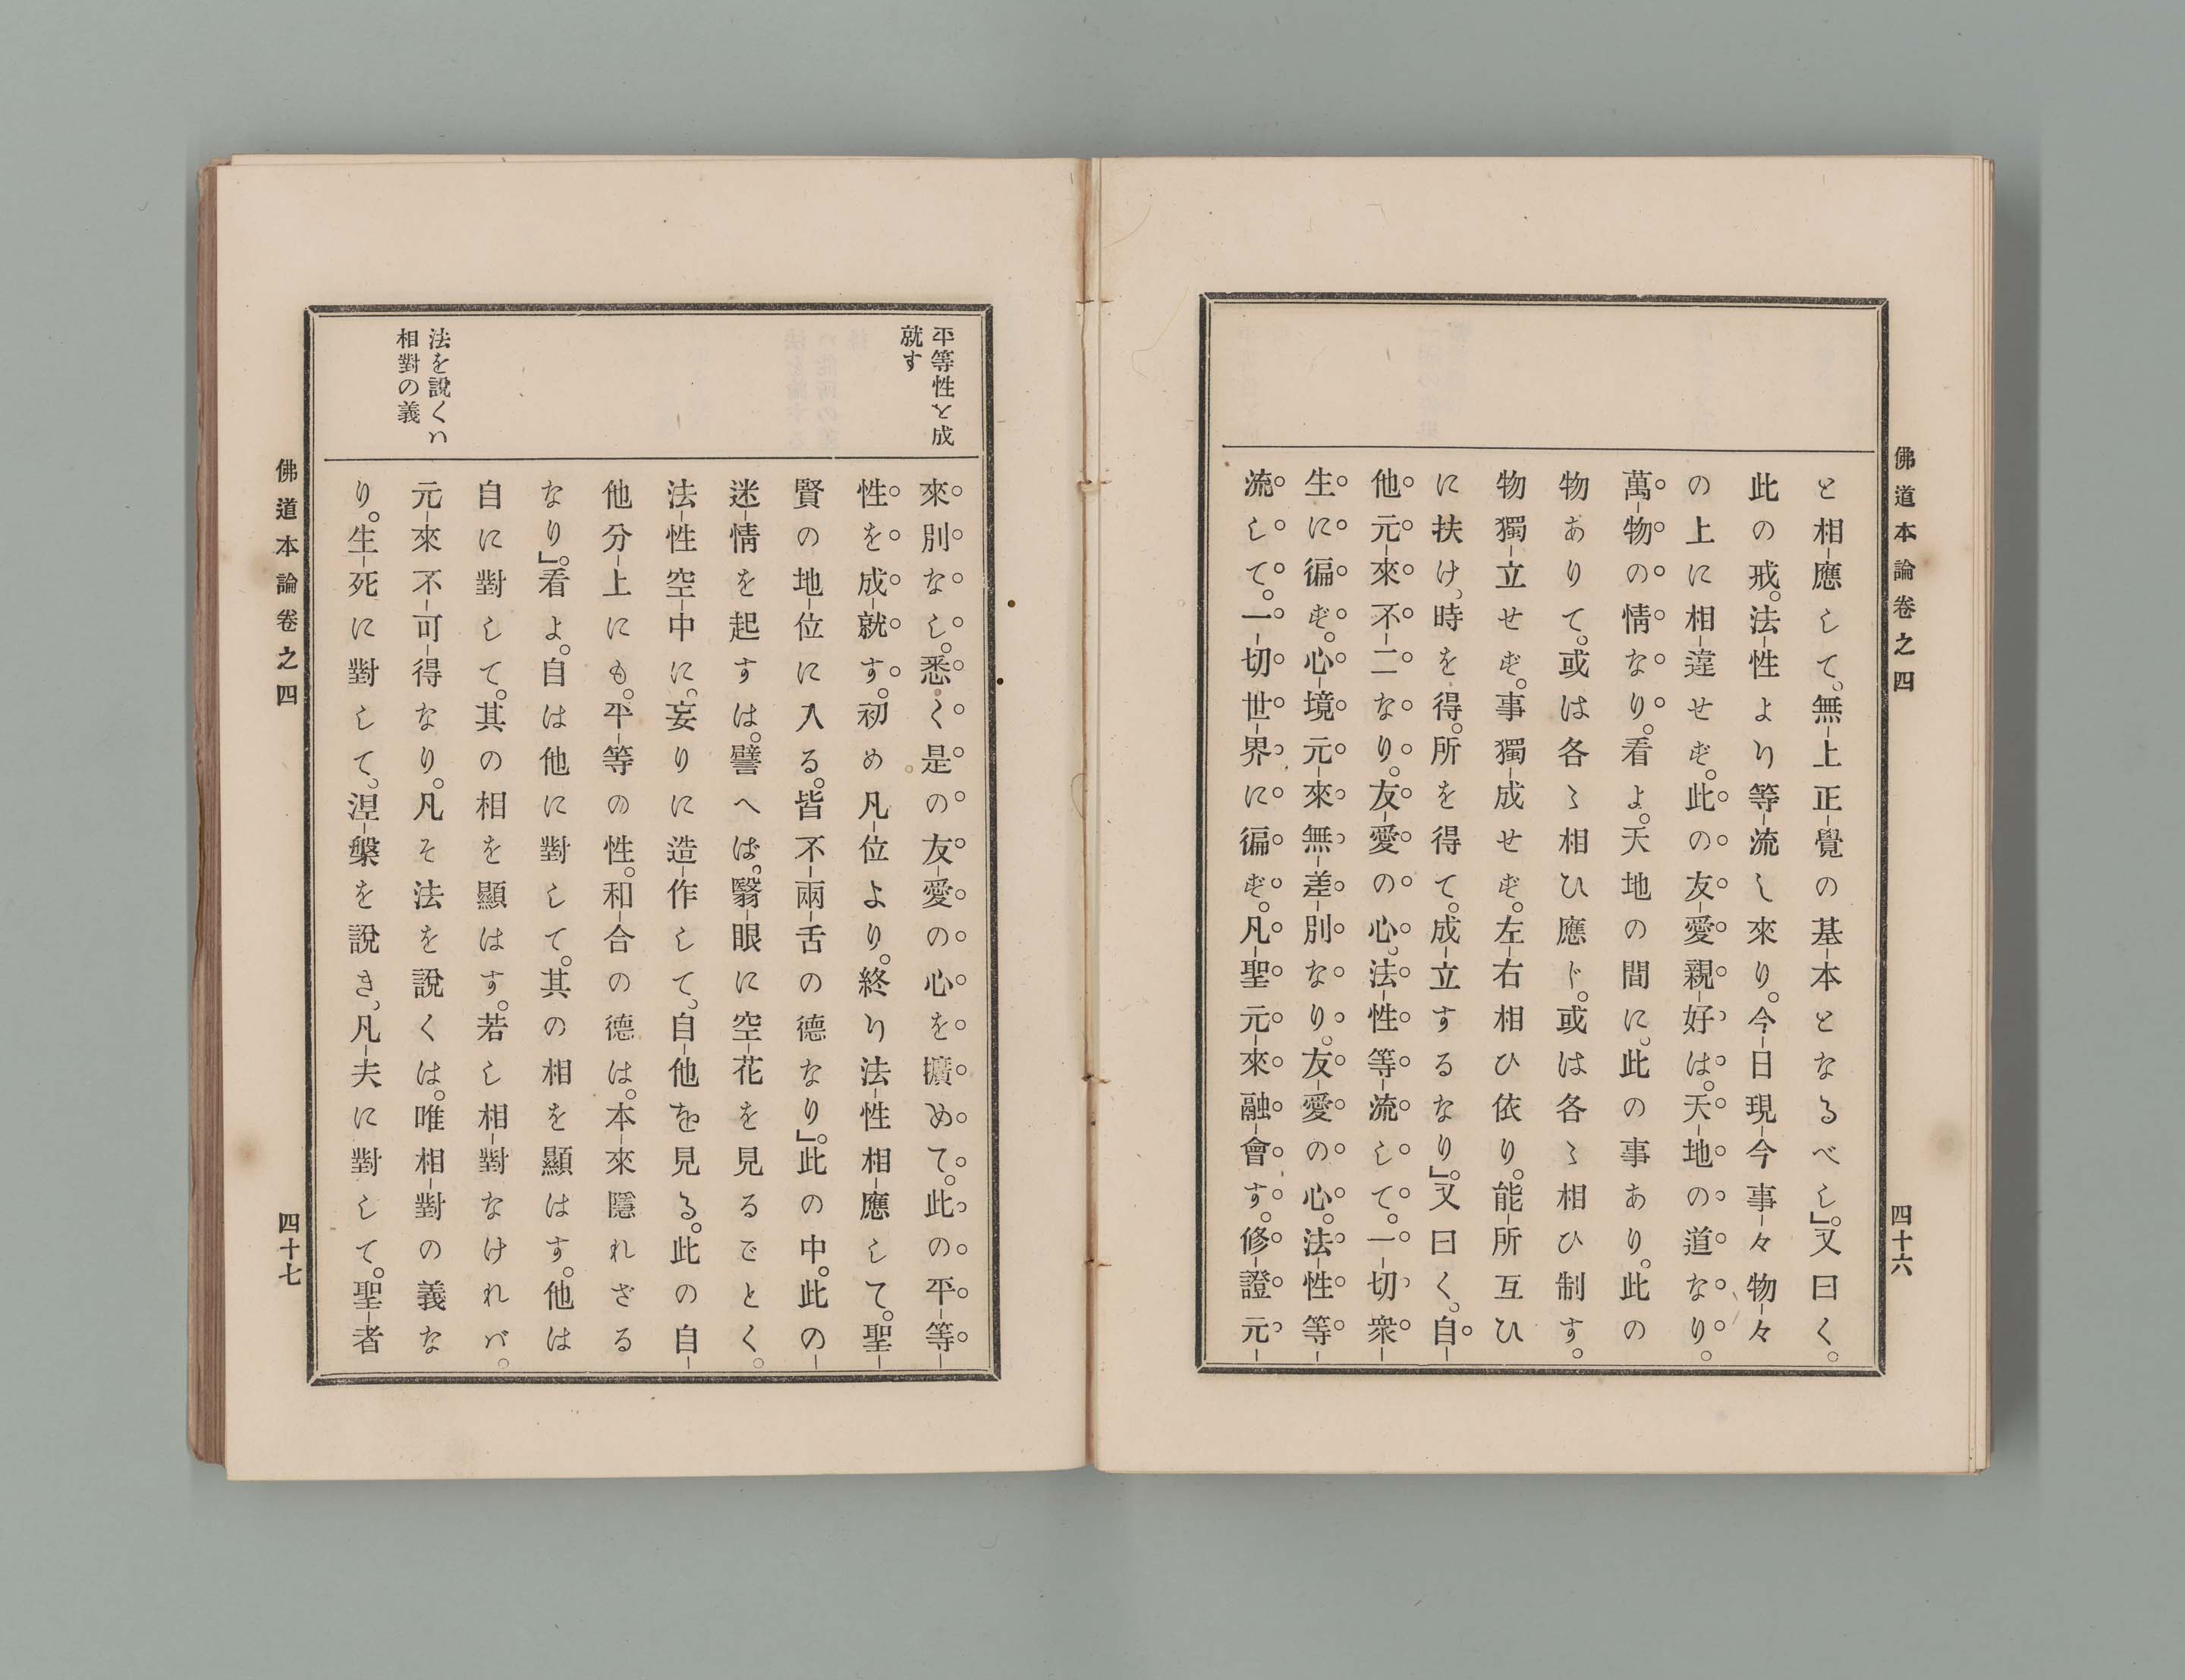 佛道本論卷之四
四十六
と相應して。無上正覺の基本となるべし』。又曰く。
此の戒。法性より等流し來り。今日現今事々物々
の上に相違せず。此の友愛親好は。天地の道なり。
萬物の情なり。看よ。天地の間に。此の事あり。此の
物ありて。或は各〻相ひ應ド。或は各〻相ひ制す。
物獨立せず。事獨成せず。左右相ひ依り。能所互ひ
に扶け、時を得。所を得て。成立するなり』。又曰く。自
他元來不二なり。友愛の心。法性等流して。一切衆
生に徧ず。心境元來無差別なり。友愛の心。法性等
流して。一切世界に徧ず。凡聖元來融會す。修證元
平等性を成
就す
法を說くハ
相對の義
來別なし。悉く是の友愛の心を擴めて。此の平等
性を成就す。初め凡位より。終り法性相應して。聖
賢の地位に入る。皆不兩舌の德なり』。此の中。此の
迷情を起すは。譬へば。翳眼に空花を見るでとく。
法性空中に。妄りに造作して、自他を見る。此の自
他分上にも。平等の性。和合の德は。本來隱れざる
なり』。看よ。自は他に對して。其の相を顯はす。他は
自に對して。其の相を顯はす。若し相對なけれバ。
元來不可得なり。凡そ法を說くは。唯相對の義な
り。生死に對して、涅槃を說き、凡夫に對して。聖者
佛道本論卷之四
四十七